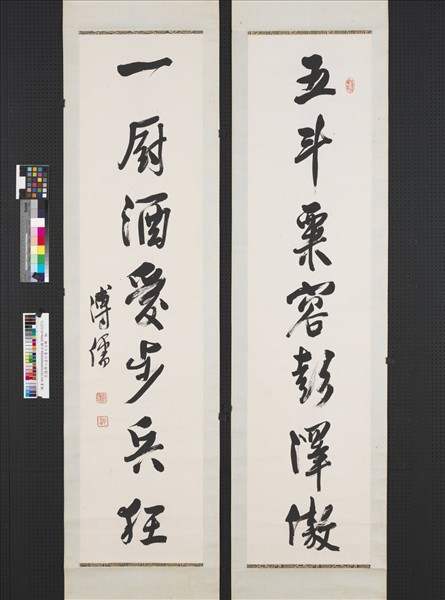 五斗粟容彭澤傲
一厨酒愛步兵狂
溥儒